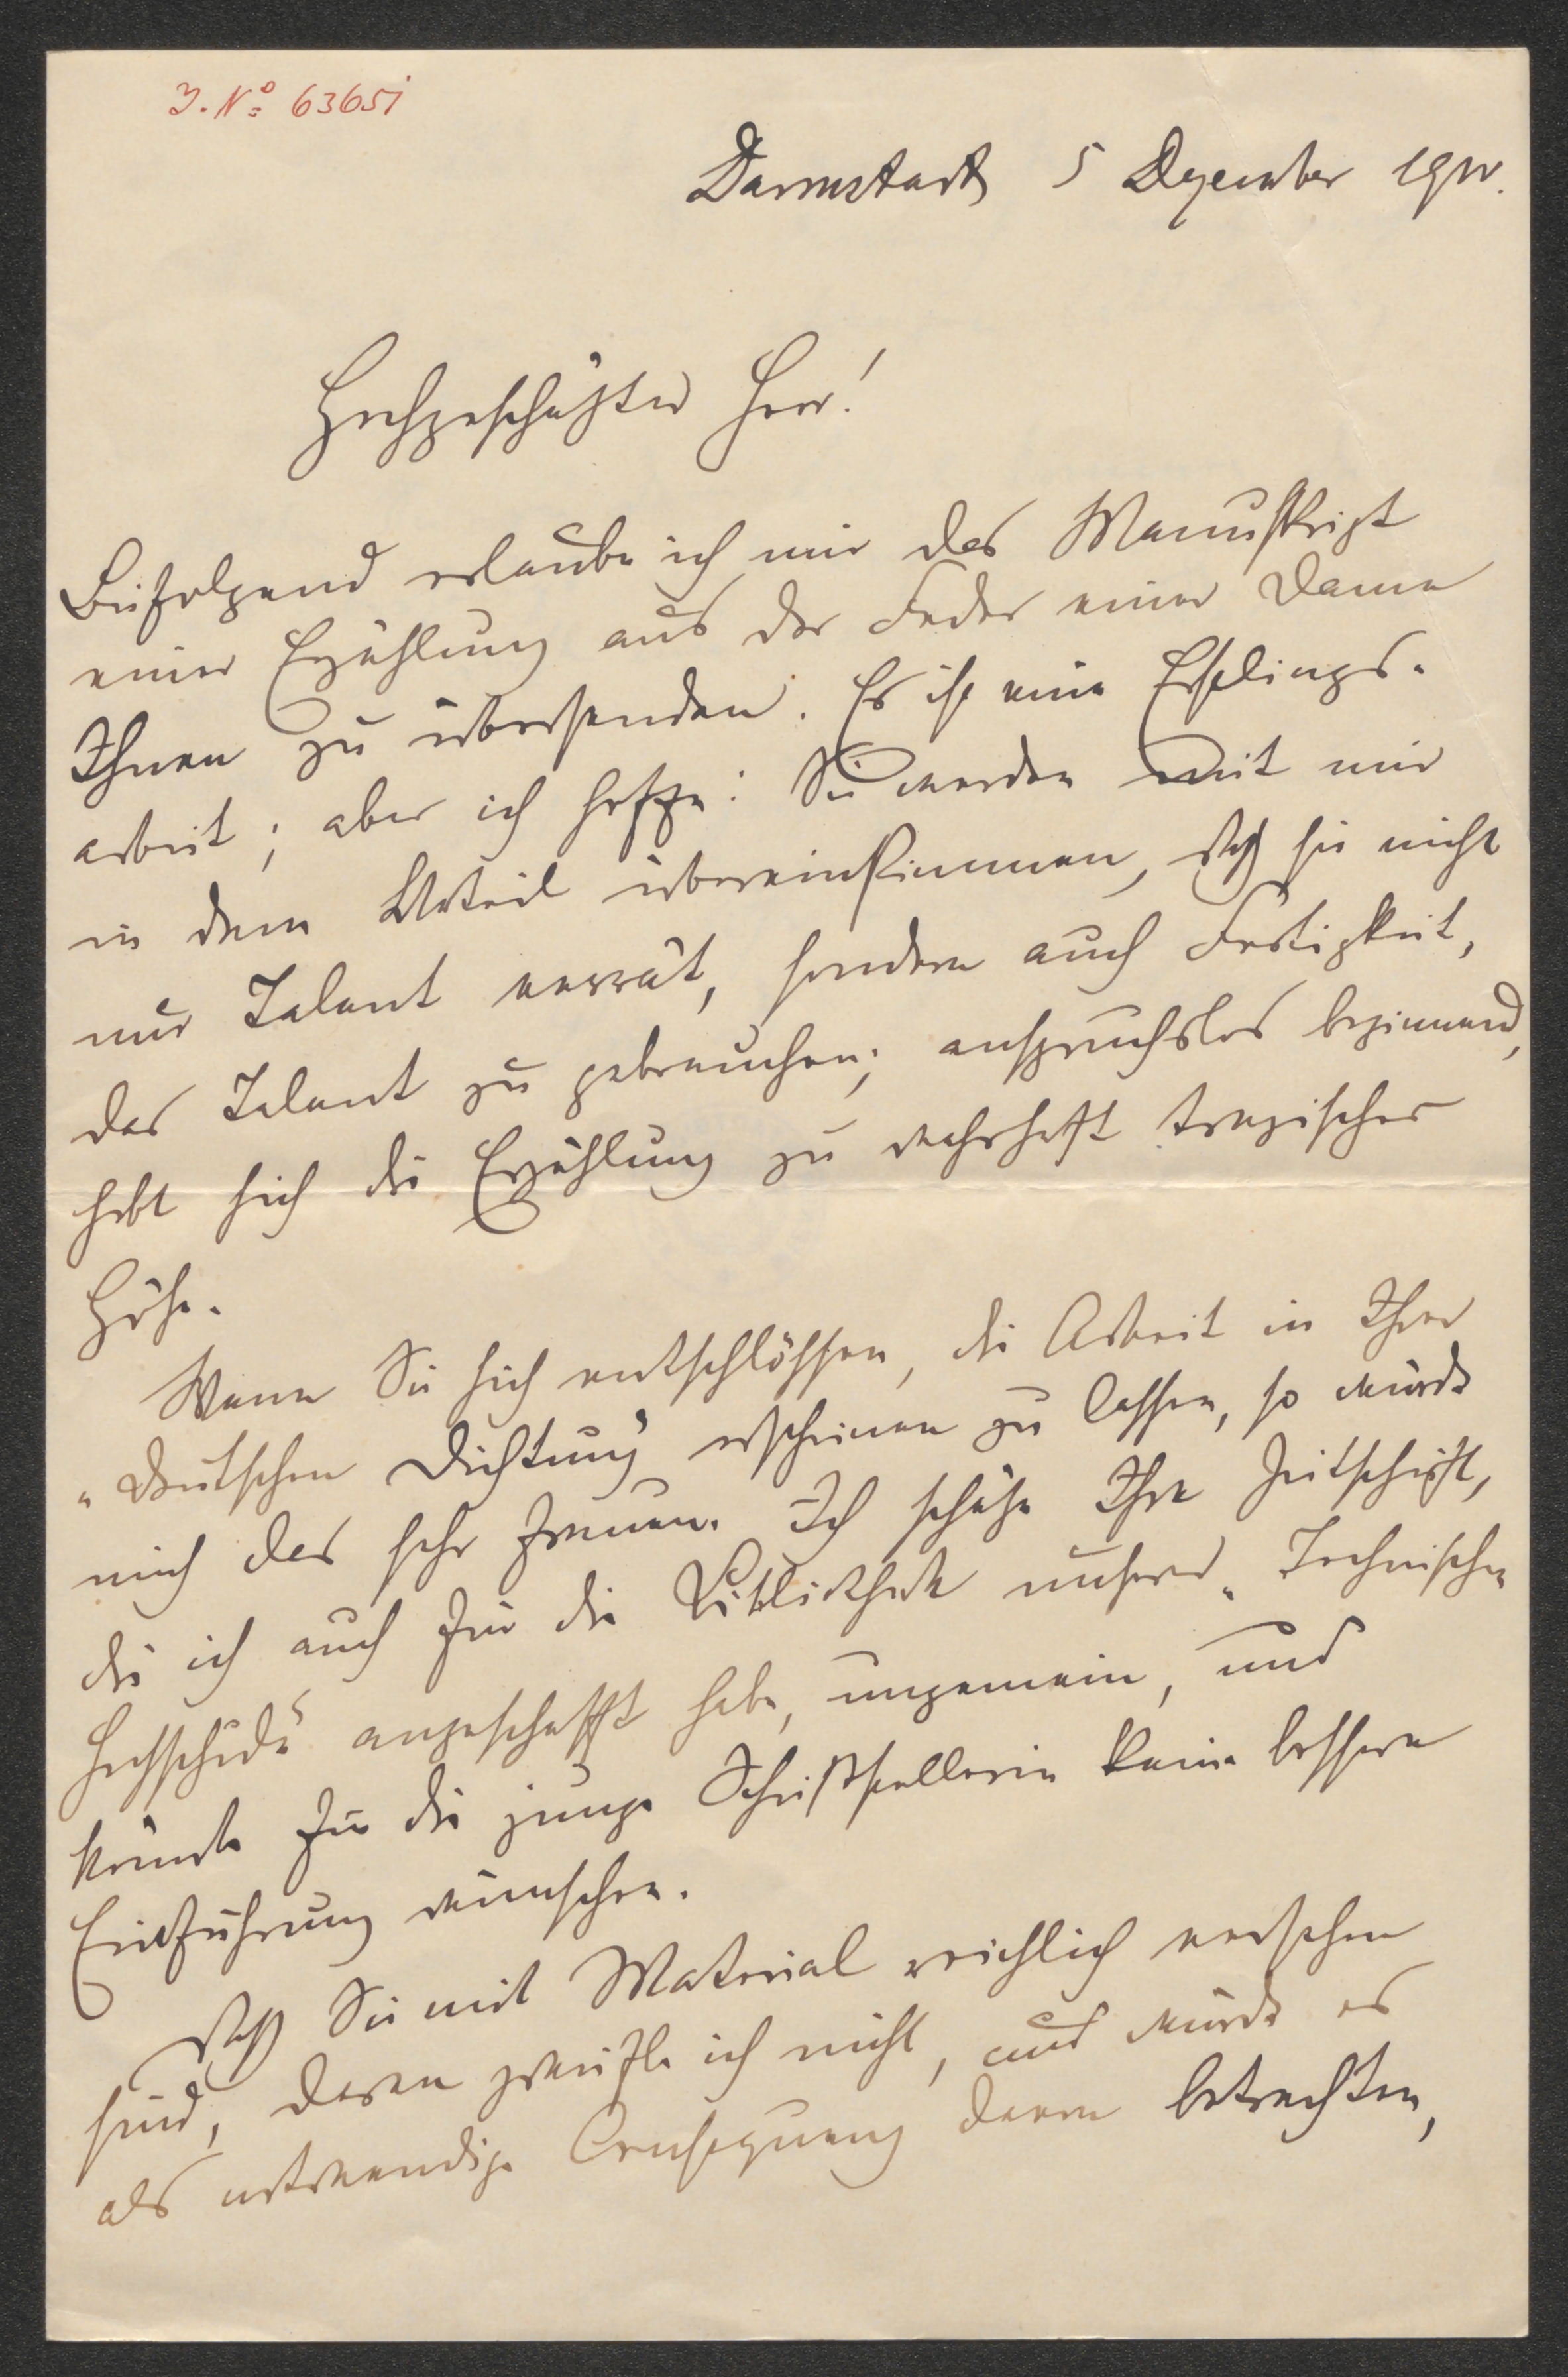 J. No: 63651
Darmstadt 5 Dezember 1900.
Hochgeschätzter Herr!
Beifolgend erlaube ich mir das Manuskript
einer Erzählung aus der Feder einer Dame
Ihnen zu übersenden. Es ist eine Erstlings-
arbeit; aber ich hoffe: Sie werden mit mir
in dem Urteil übereinstimmen, daß sie nicht
nur Talent verrät, sondern auch Fertigkeit,
das Talent zu gebrauchen; anspruchslos beginnend,
hebt sich die Erzählung zu wahrhaft tragischer
Höhe.
Wenn Sie sich entschlössen, die Arbeit in Ihrer
„Deutschen Dichtung“ erscheinen zu lassen, so würde
mich das sehr freuen. Ich schätze Ihre Zeitschrift,
die ich auch für die Bibliothek unserer „Technischen
Hochschule“ angeschafft habe, ungemein, und
könnte für die junge Schriftstellerin keine bessere
Einführung wünschen.
Daß Sie mit Material reichlich versehen
sind, daran zweifle ich nicht, und würde es
als notwendige Consequenz davon betrachten,